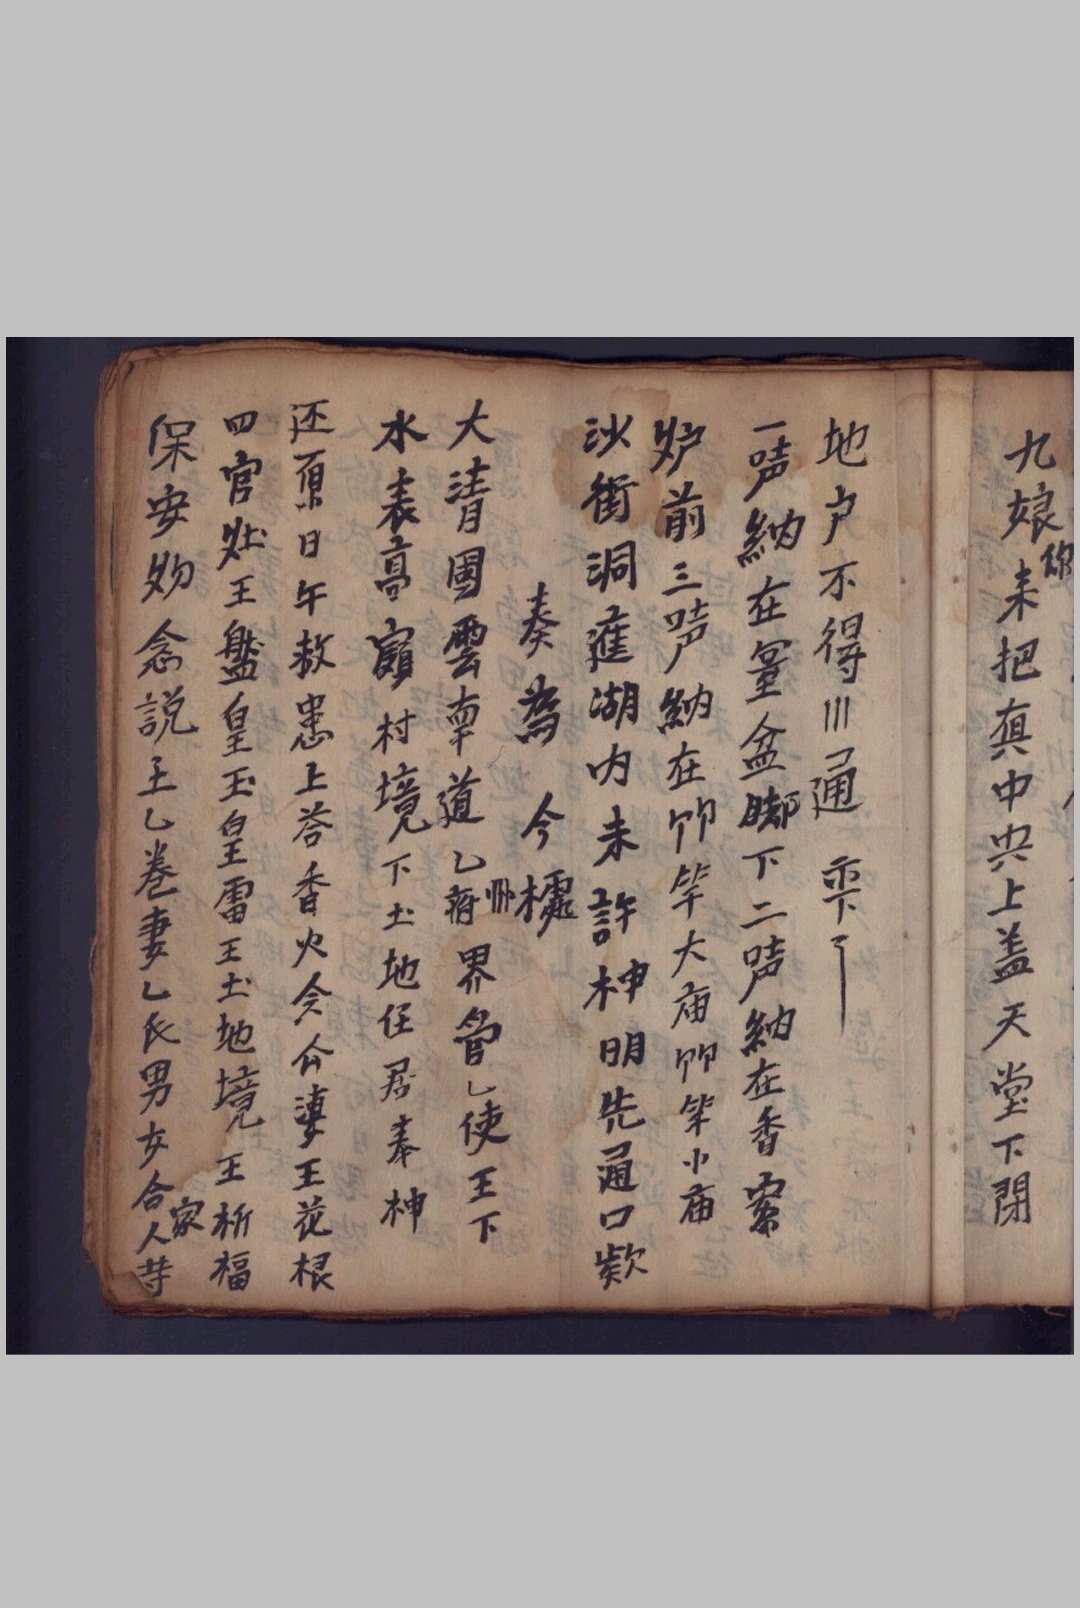 九娘你来把真中央上盖天堂下閉
地户不得川通
一唪納在量盆脚下二唪納在香案
炉前三唪納在竹竿大庙竹竿小庙
沙街洞進湖内未許神明先通口欵
奏為今據
大清國雲南道乙府州界管乙使王下
水表高嶺村境下土地任居奉神
还願日午救患上答香火今仰婆王花根
四官灶王盤皇玉皇雷王土地境王祈福
保安勿念説王乙卷妻乙氏男女合家人苛